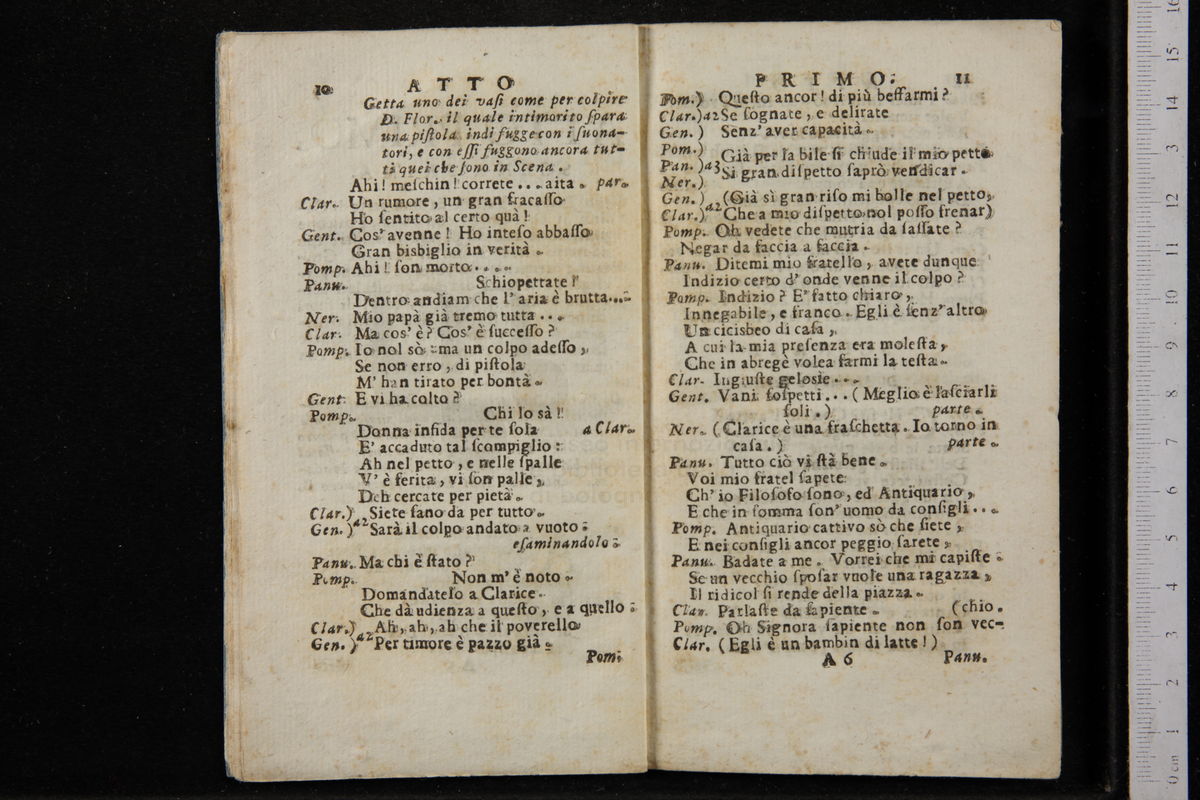 10 ATTO
Getta uno dei vaſi come per colpire
D. Flor. il quale intimorito ſpara
una piſtola indi fugge con i ſuona-
tori, e con eſſi fuggono ancora tut-
ti quei che ſono in Scena.
Ahi! meſchin! correte ... aita. par.
Clar. Un rumore, un gran fracaſſo
Ho ſentito al certo quà!
Gent. Cos' avenne! Ho inteſo abbaſſo
Gran bisbiglio in verità.
Pomp. Ahi! ſon morto....
Panu. Schiopettrate!
Dentro andiam che l' aria è brutta....
Ner. Mio papà già tremo tutta ...
Clar. Ma cos' è? Cos' è ſucceſſo?
Pomp. Io nol sò: ma un colpo adeſſo,
Se non erro, di piſtola
M' han tirato per bontà.
Gent. E vi ha colto?
Pomp. Chi lo sà!
Donna infida per te ſola a Clar.
E' accaduto tal ſcompiglio:
Ah nel petto, e nelle ſpalle
V' è ferita, vi ſon palle,
Deh cercate per pietà.
Clar.) Siete ſano da per tutto.
Gen.) a2 Sarà il colpo andato a vuoto:
eſaminandolo:
Panu. Ma chi è ſtato?
Pomp. Non m' è noto.
Domandatelo a Clarice.
Che dà udienza a queſto, e a quello:
Clar.) Ah, ah, ah che il poverello
Gen.) a2 Per timore è pazzo già.
Pom.
PRIMO. 11
Pom.) Queſto ancor! di più beffarmi?
Clar.) a2 Se ſognate, e delirate
Gen.) Senz' aver capacità.
Pom.) Già per la bile ſi chiude il mio petto
Pan.) a3 Si gran diſpetto ſaprò vendicar.
Ner.)
Gen.) (Già sì gran riſo mi bolle nel petto,
Clar.) a2 Che a mio diſpetto nol poſſo frenar)
Pomp. Oh vedete che mutria da ſaſſate?
Negar da faccia a faccia.
Panu. Ditemi mio fratello, avete dunque
Indizio certo d' onde venne il colpo?
Pomp. Indizio? E' fatto chiaro,
Innegabile, e franco. Egli è ſenz' altro
Un cicisbeo di caſa,
A cui la mia preſenza era moleſta,
Che in abregè volea farmi la teſta.
Clar. Ingiuſte geloſie...
Gent. Vani ſoſpetti... (Meglio è laſciarli
ſoli.) parte.
Ner. (Clarice è una fraſchetta. Io torno in
caſa.) parte.
Panu. Tutto ciò vi ſtà bene.
Voi mio fratel ſapete
Ch' io Filoſofo ſono, ed Antiquario,
E che in ſomma ſon' uomo da conſigli...
Pomp. Antiquario cattivo sò che ſiete,
E nei conſigli ancor peggio ſarete,
Panu. Badate a me. Vorrei che mi capiſte:
Se un vecchio ſpoſar vuole una ragazza,
Il ridicol ſi rende della piazza.
Clar. Parlaſte da ſapiente. (chio.
Pomp. Oh Signora ſapiente non ſon vec-
Clar. (Egli è un bambin di latte!)
A 6 Panu.